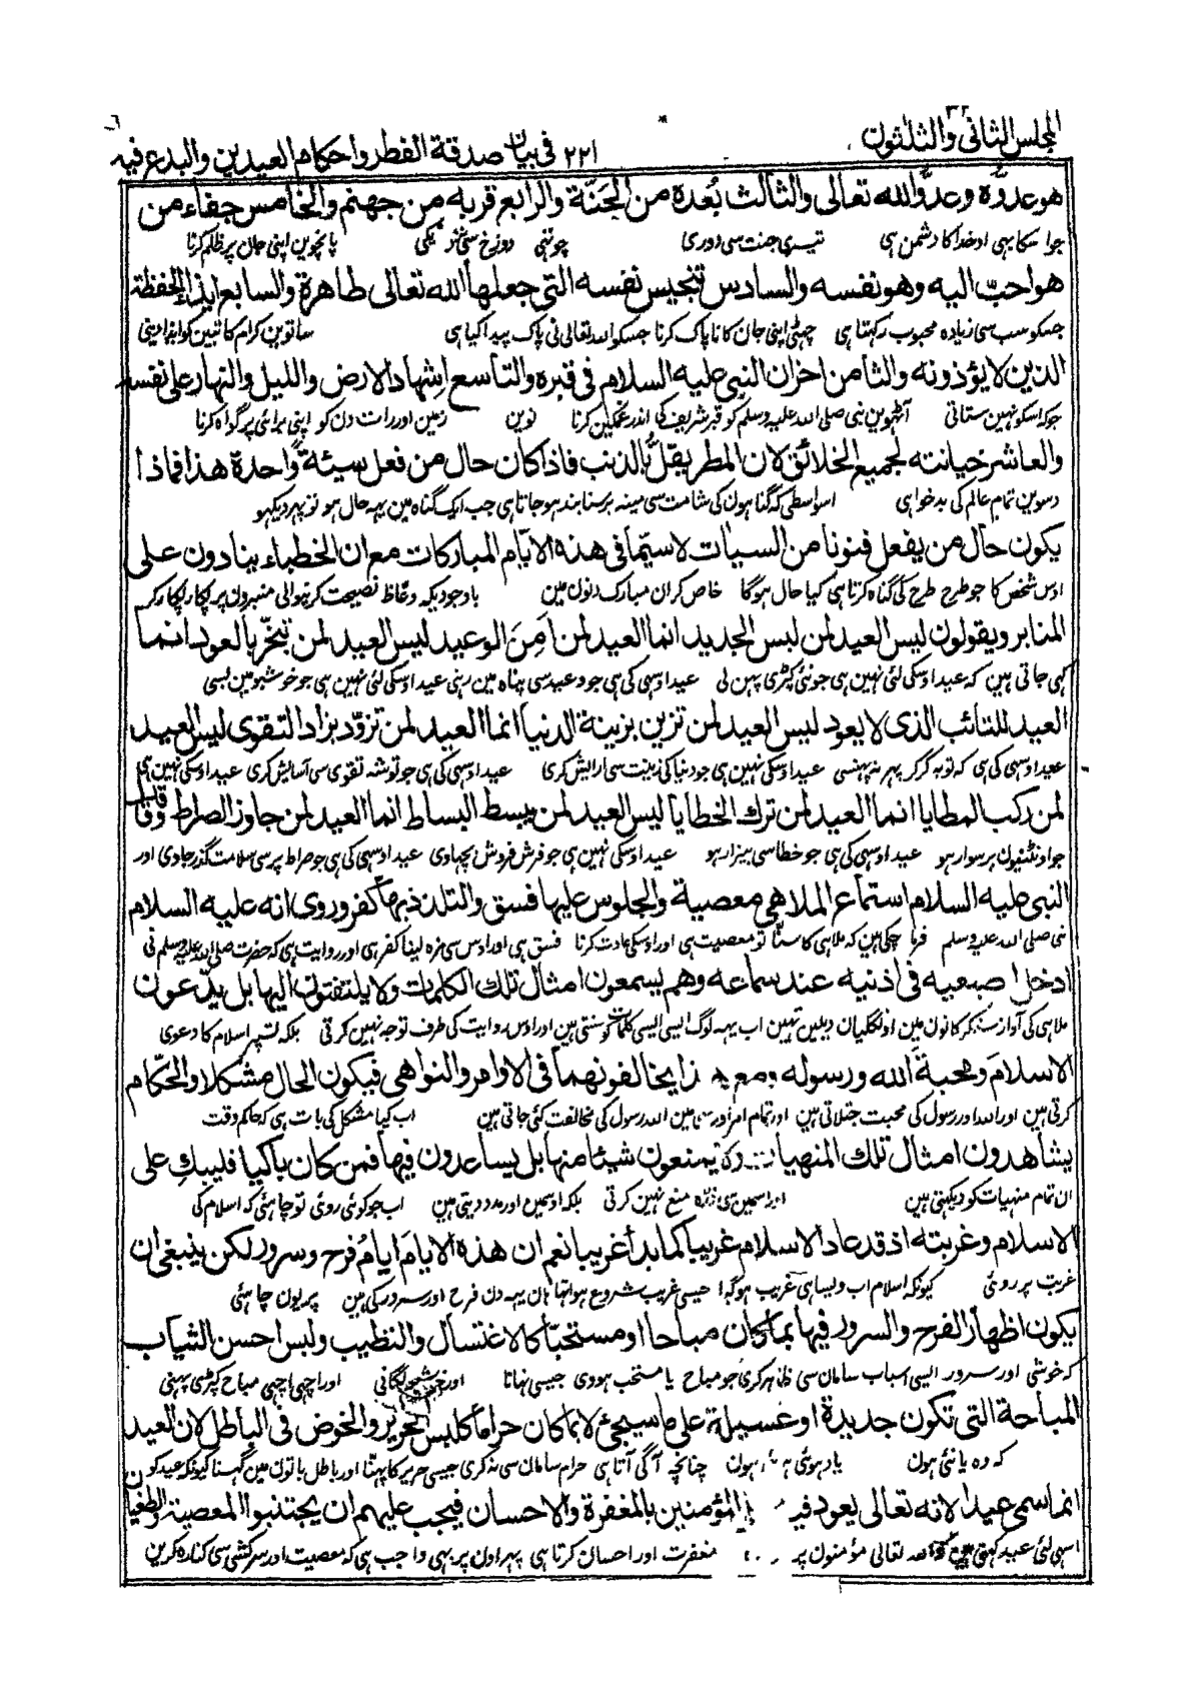 المجلس الثانى والثلثون
٢٢١ فى بيان صدقة الفطر واحكام العيدين والبدع فيه
هو عدوّه وعدوّالله تعالى والثالث بُعده من الجَنَّة والرابع قربه من جهنم والخامس جفاء من
جو اسکا بہی اور خدا کا دشمن ہی تیسری جنت سی دوری چوتہی دوزخ سی نزدیکی پانچوین اپنی جان پر ظلم کرنا
هو احبّ اليه وهو نفسه والسادس تنجيس نفسه التى جعلها الله تعالى طاهرة والسابع ايذاء الحفظة
جسکو سب سی زیادہ محبوب رکہتا ہی چہٹی اپنی جان کا ناپاک کرنا جسکو اللہ تعالی نی پاک پیدا کیا ہی ساتوین کرام کاتبین کو ایذا دینی
الذين لا يؤذونه والثامن احزان النبى عليه السلام فى قبره والتاسع اشهاد الارض والليل والنهار على نفسه
جو کہ اسکو نہین ستاتی آٹہوین نبی صلی اللہ علیہ وسلم کو قبر شریف کی اندر غمگین کرنا نوین زمین اور رات دن کو اپنی برائی پر گواہ کرنا
والعاشر خيانته لجميع الخلائق لان المطر يقل بالذنب فاذا كان حال من فعل سيئة واحدة هذا فماذا
دسوین تمام عالم کی بدخواہی اسواسطی کہ گناہون کی شامت سی مینہ برسنا بند ہو جاتا ہی جب ایک گناہ مین یہہ حال ہو تو پہر دیکہو
يكون حال من يفعل فنونا من السيات لاسيّما فى هذه الايّام المباركات مع ان الخطباء ينادون على
اوس شخص کا جو طرح طرح کی گناہ کرتا ہی کیا حال ہوگا خاص کر ان مبارک دنون مین باوجودیکہ وعّاظ نصیحت کرنیوالی منبرون پر پکار پکار کر
المنابر ويقولون ليس العيد لمن لبس الجديد انما العيد لمن اَمِنَ الوعيد ليس العيد لمن تبخّر بالعود انما
کہی جاتی ہین کہ عید اوسکی لئی نہین ہی جو نئی کپڑی پہن لی عید اوسہی کی ہی جو وعید سی پناہ مین رہی عید اوسکی لئی نہین ہی جو خوشبو مین بسی
العيد للتائب الذى لا يعود ليس العيد لمن تزين بزينة الدنيا انما العيد لمن تزوّد بزاد التقوى ليس العيد
عید اوسہی کی ہی کہ توبہ کر کر پہر نہ پہنسی عید اوسکی نہین ہی جو دنیا کی زینت سی آرایش کری عید اوسہی کی ہی جو توشہ تقوی سی آسایش کری عید اوسکی نہین ہی
لمن ركب المطايا انما العيد لمن ترك الخطايا ليس العيد لمن بسط البساط انما العيد لمن جاوز الصراط وقال
جو اونٹنیون پر سوار ہو عید اوسہی کی ہی جو خطا سی بیزار ہو عید اوسکی نہین ہی جو فرش فروش بچہاوی عید اوسہی کی ہی جو صراط پر سی سلامت گذر جاوی اور
النبى عليه السلام استماع الملاهى معصية والجلوس عليها فسق والتلذذ بها كفر وروى انه عليه السلام
نبی صلی اللہ علیہ وسلم فرما چکی ہین کہ ملاہی کا سننا تو معصیت ہی اور اوسکی عادت کرنا فسق ہی اور اوس سی مزہ لینا کفر ہی اور روایت ہی کہ حضرت صلی اللہ علیہ وسلم نی
ادخل اصبعيه فى اذنيه عند سماعه وهم يسمعون امثال تلك الكلمات ولا يلتفتون اليها بل يدّعون
ملاہی کی آواز سنکر کانون مین اونگلیان دیلین تہین اب یہہ لوگ ایسی ایسی کلمات کو سنتی ہین اور اوس روایت کی طرف توجہ نہین کرتی بلکہ اسلام کا دعوی
الاسلامَ ومحبةَ الله ورسوله يخالفونهما فى الاوامر والنواهى فيكون الحال مشكلا والحكام
کرتی ہین اور اللہ اور رسول کی محبت جتلاتی ہین اور تمام امر اور مین اللہ رسول کی مخالفت کئی جاتی ہین اب کیا مشکل کی بات ہی کہ حاکم وقت
يشاهدون امثال تلك المنهيات ولا يمنعون شيئا منها بل يساعدون فيها فمن كان باكيا فليبك على
ان تمام منہیات کو دیکہتی ہین اور اسمین سی ذرہ منع نہین کرتی بلکہ اوسمین اور مدد دیتی ہین اب جو کوئی روئی تو چاہئی کہ اسلام کی
الاسلام وغربته اذ قد عاد الاسلام غريبا كما بدأ غريبا نعم ان هذه الايامَ ايامُ فرح وسرور لكن ينبغى ان
غربت پر روئی کیونکہ اسلام اب ویسا ہی غریب ہوگیا جیسی غریب شروع ہوا تہا ہان یہہ دن فرح اور سرور کی ہین پر یون چاہئی
يكون اظهار الفرح والسرور فيها بما كان مباحا او مستحبّا كالاغتسال والتطيب ولبس احسن الثياب
کہ خوشی اور سرور ایسی اسباب سامان سی ظاہر کری جو مباح یا مستحب ہووی جیسی نہانا اور خوشبو لگانی اور اچہی اچہی مباح کپڑی پہنی
المباحة التى تكون جديدة او غسيلة على ما سيجئ لا بما كان حراما كلبس الحرير والخوض فى الباطل لان العيد
کہ وہ یا نئی ہون یا دہوئی ہوئی ہون چنانچہ آگی آتا ہی حرام سامان سی نکری جیسی حریر کا پہنا اور باطل باتون مین گہسنا کیونکہ عید کو
انما سمى عيدا لانه تعالى يعود فيه المؤمنين بالمغفرة والاحسان فيجب عليهم ان يجتنبوا المعصية والطغيان
اسہی لئی عید کہتی ہین کہ اللہ تعالی مؤمنون پر مغفرت اور احسان کرتا ہی پہر اون پر بہی واجب ہی کہ معصیت اور سرکشی سی کنارہ کرین